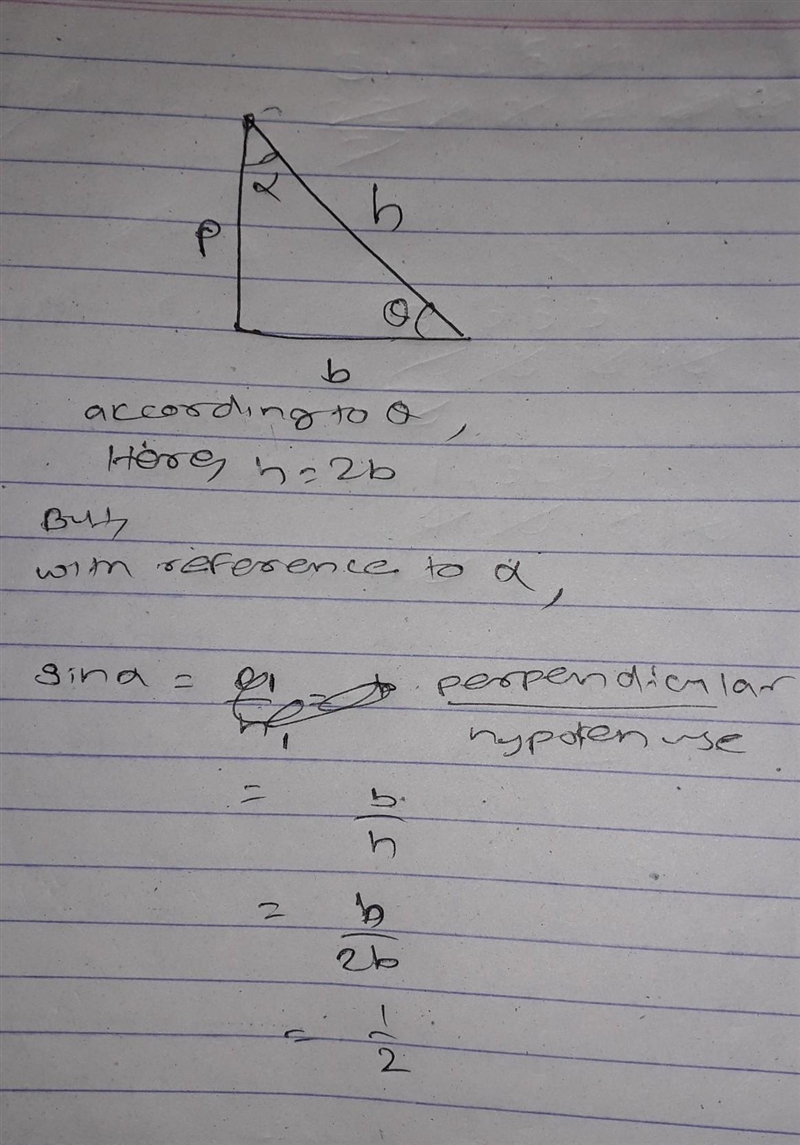 α
h
p
θ
b
according to θ,
Here, h = 2b
But,
with reference to α,
sinα = perpendicular
hypotenuse
= b
h
= b
2b
= 1
2